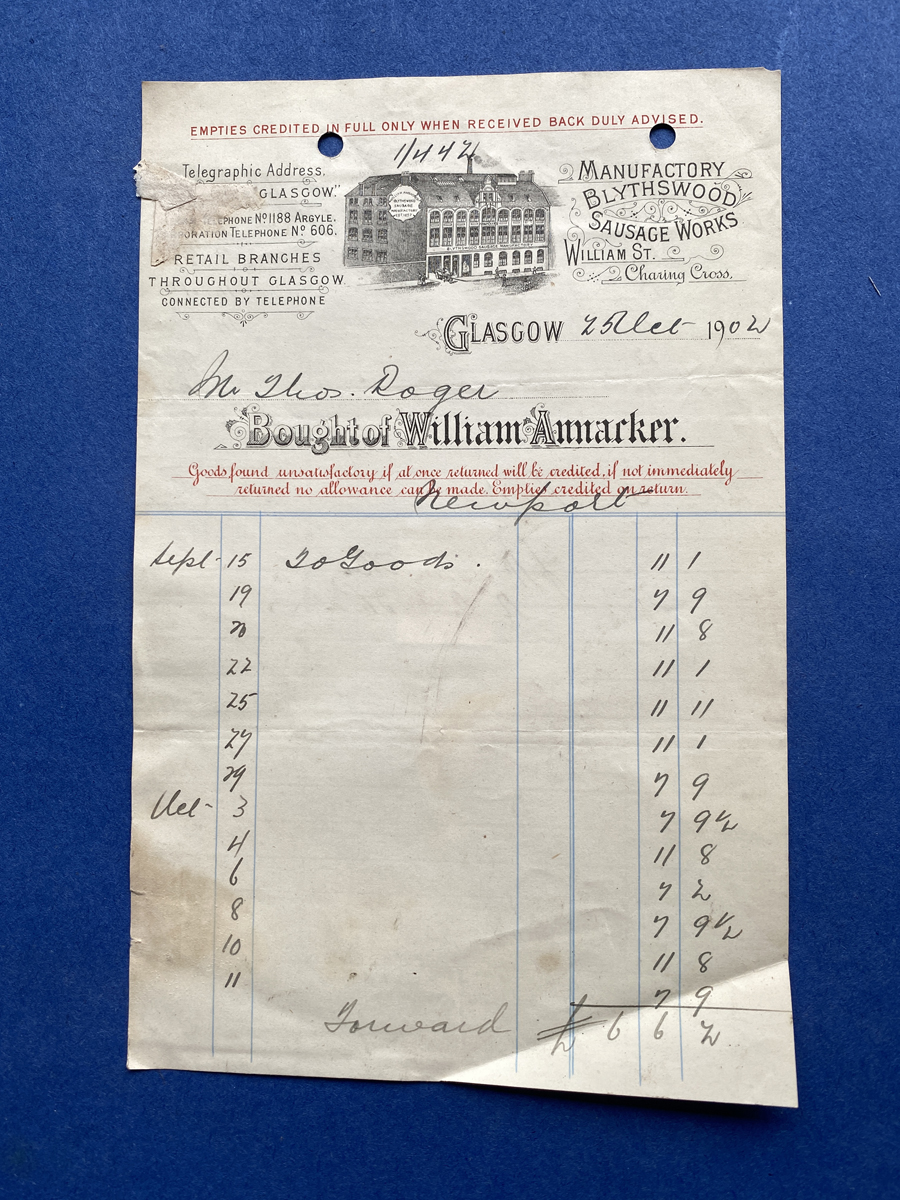 EMPTIES CREDITED IN FULL ONLY WHEN RECEIVED BACK DULY ADVISED.
1/442
Telegraphic Address,
GLASGOW."
TELEPHONE Nº 1188 ARGYLE.
ORATION TELEPHONE Nº 606.
RETAIL BRANCHES
THROUGHOUT GLASGOW
CONNECTED BY TELEPHONE
BLYTHSWOOD
SAUSAGE
MANUFACTORY
MANUFACTORY
BLYTHSWOOD
SAUSAGE WORKS
WILLIAM ST.
Charing Cross,
GLASGOW 25 Oct 1902
Mr Thos. Roger
Bought of William Annacker.
Goods found unsatisfactory if at once returned will be credited, if not immediately
returned no allowance can be made. Empties credited on return.
Newport
Sept 15 To Goods. 11 1
19 7 9
20 11 8
22 11 1
25 11 11
27 11 1
29 7 9
Oct 3 7 9½
4 11 8
6 7 2
8 7 9½
10 11 8
11 7 9
Forward £ 6 6 2